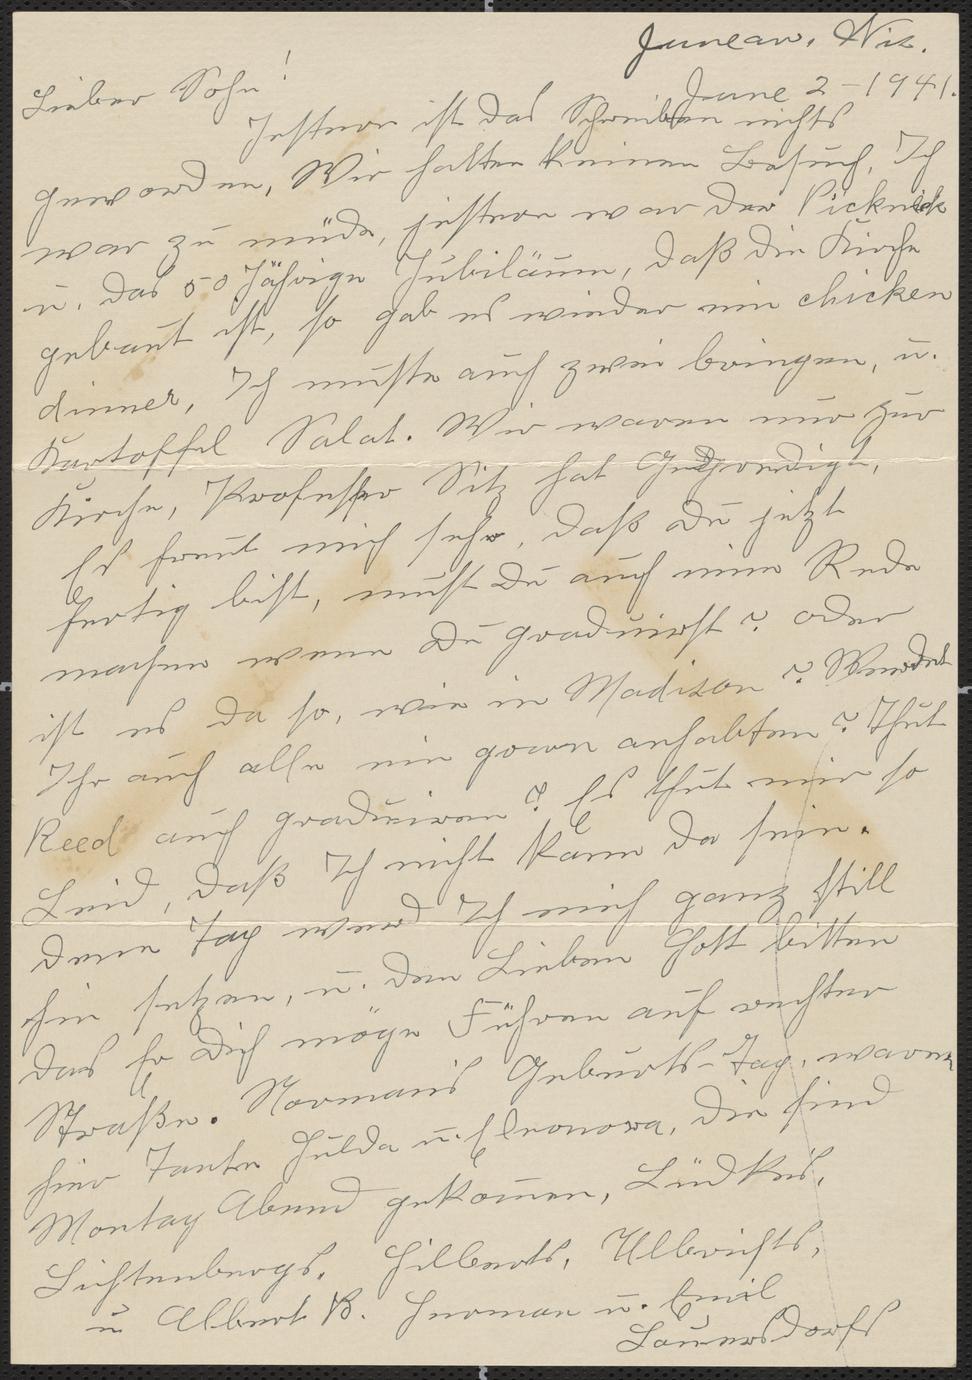 Juneau, Wis.
June 2 - 1941.
Lieber Sohn!
Jestern ist das Schreiben nichts
geworden, Wir hatten keinen Besuch, Ich
war zu müde, jestern war der Picknick
u. das 50 Jährige Jubiläum, daß die Kirche
gebaut ist, so gab es wieder ein chicken
dinner, Ich mußte auch zwei bringen, u.
Kartoffel Salat. Wir waren nur zur
Kirche, Professor Sitz hat Gepredigt,
Es freut mich sehr, daß du jetzt
fertig bist, must Du auch eine Rede
machen wenn Du graduirst? oder
ist es da so, wie in Madison? Werdet
Ihr auch alle ein gown anhabten? Thut
Reed auch graduiren? Es thut mir so
Leid, daß Ich nicht kann da sein.
denn Tag werd Ich mich ganz still
hin setzen, u. den Lieben Gott bitten
das Er Dich möge Führen auf rechter
Straße. Normans Geburts-Tag, waren
hier Tante Hulda u. Eleonora, die sind
Montag Abend gekommen, Lüdkes,
Lichtenbergs, Hilberts, Ullrichts,
u Albert B. Herman u. Emil
Lauersdorfs